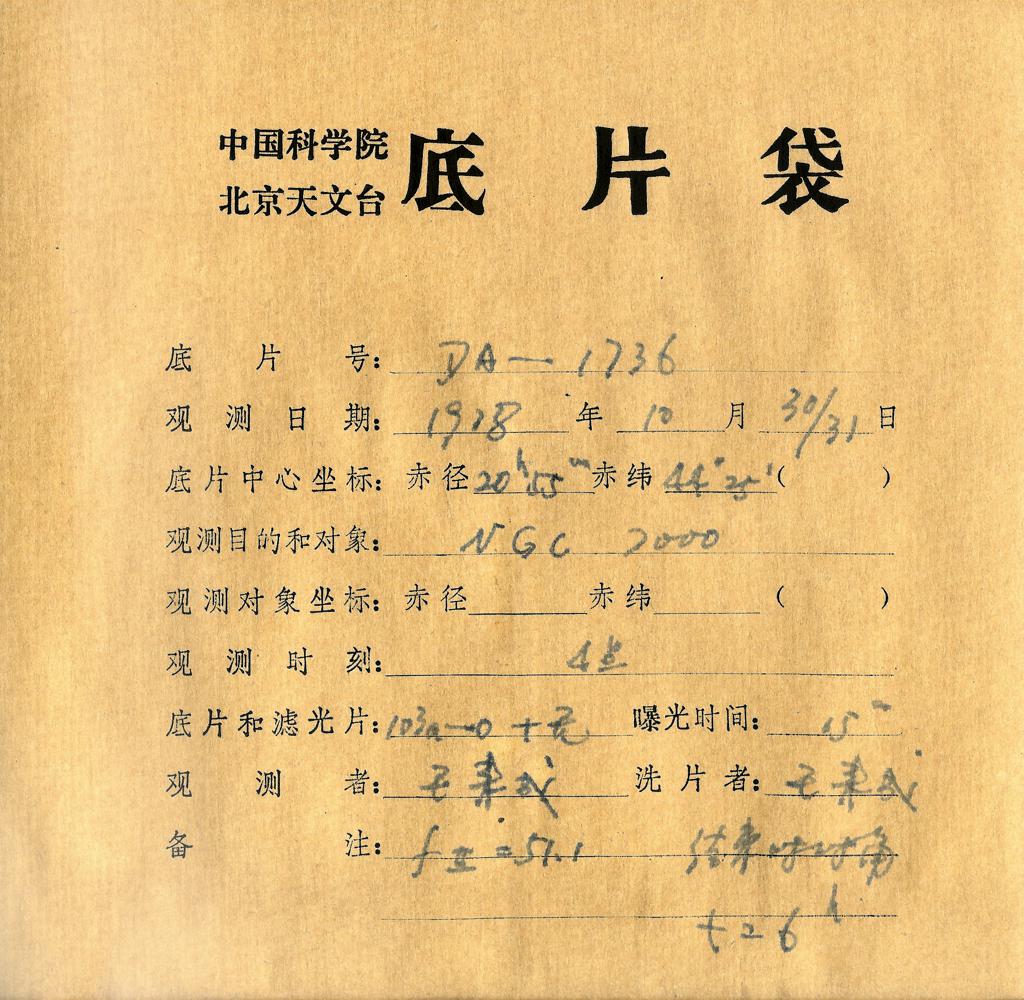 中国科学院
北京天文台 底片袋
底片号: DA—1736
观测日期: 1978 年 10 月 30/31 日
底片中心坐标: 赤径 20h55m 赤纬 44°25' ( )
观测目的和对象: NGC 7000
观测对象坐标: 赤径 赤纬 ( )
观测时刻: 4点
底片和滤光片: 103a—O + 无 曝光时间: 15m
观测者: 洗片者:
备注: f = 51.1 结束时时角
t = 6h